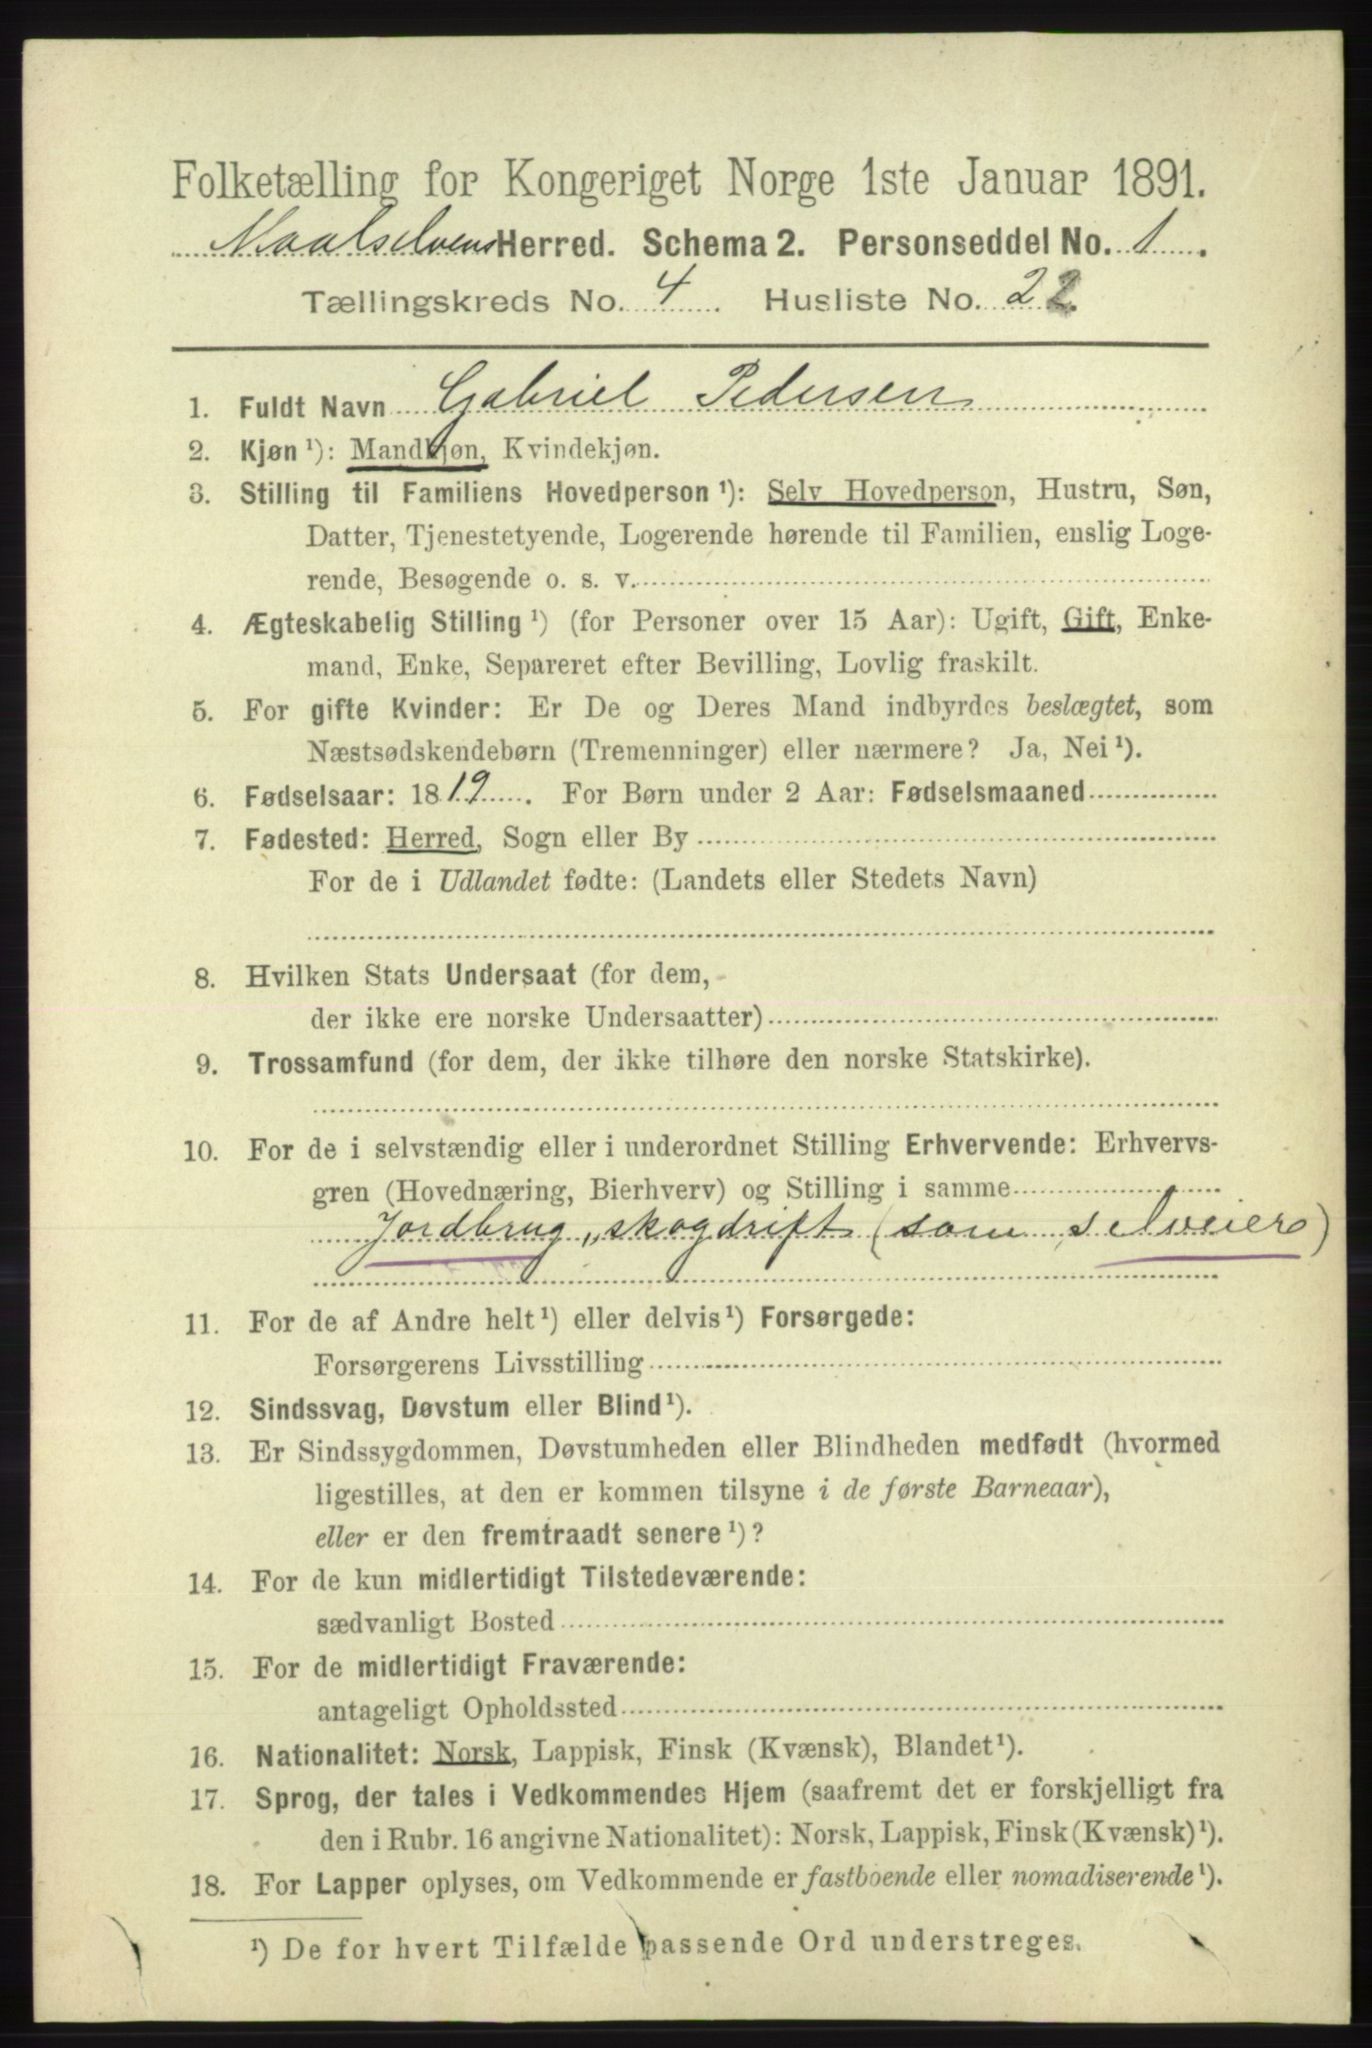 Folketælling for Kongeriget Norge 1ste Januar 1891.
Maalselvens Herred. Schema 2. Personseddel No. 1.
Tællingskreds No. 4. Husliste No. 22
1. Fuldt Navn Gabriel Pedersen
2. Kjøn ¹): Mandkjøn, Kvindekjøn.
3. Stilling til Familiens Hovedperson ¹): Selv Hovedperson, Hustru, Søn,
Datter, Tjenestetyende, Logerende hørende til Familien, enslig Loge-
rende, Besøgende o. s. v.
4. Ægteskabelig Stilling ¹) (for Personer over 15 Aar): Ugift, Gift, Enke-
mand, Enke, Separeret efter Bevilling, Lovlig fraskilt.
5. For gifte Kvinder: Er De og Deres Mand indbyrdes beslægtet, som
Næstsødskendebørn (Tremenninger) eller nærmere? Ja, Nei ¹).
6. Fødselsaar: 1819. For Børn under 2 Aar: Fødselsmaaned
7. Fødested: Herred, Sogn eller By
For de i Udlandet fødte: (Landets eller Stedets Navn)
8. Hvilken Stats Undersaat (for dem,
der ikke ere norske Undersaatter)
9. Trossamfund (for dem, der ikke tilhøre den norske Statskirke).
10. For de i selvstændig eller i underordnet Stilling Erhvervende: Erhvervs-
gren (Hovednæring, Bierhverv) og Stilling i samme
Jordbrug „ skogdrift (som selveier)
11. For de af Andre helt ¹) eller delvis ¹) Forsørgede:
Forsørgerens Livsstilling
12. Sindssvag, Døvstum eller Blind ¹).
13. Er Sindssygdommen, Døvstumheden eller Blindheden medfødt (hvormed
ligestilles, at den er kommen tilsyne i de første Barneaar),
eller er den fremtraadt senere ¹)?
14. For de kun midlertidigt Tilstedeværende:
sædvanligt Bosted
15. For de midlertidigt Fraværende:
antageligt Opholdssted
16. Nationalitet: Norsk, Lappisk, Finsk (Kvænsk), Blandet ¹).
17. Sprog, der tales i Vedkommendes Hjem (saafremt det er forskjelligt fra
den i Rubr. 16 angivne Nationalitet): Norsk, Lappisk, Finsk (Kvænsk) ¹).
18. For Lapper oplyses, om Vedkommende er fastboende eller nomadiserende ¹).
¹) De for hvert Tilfælde passende Ord understreges.